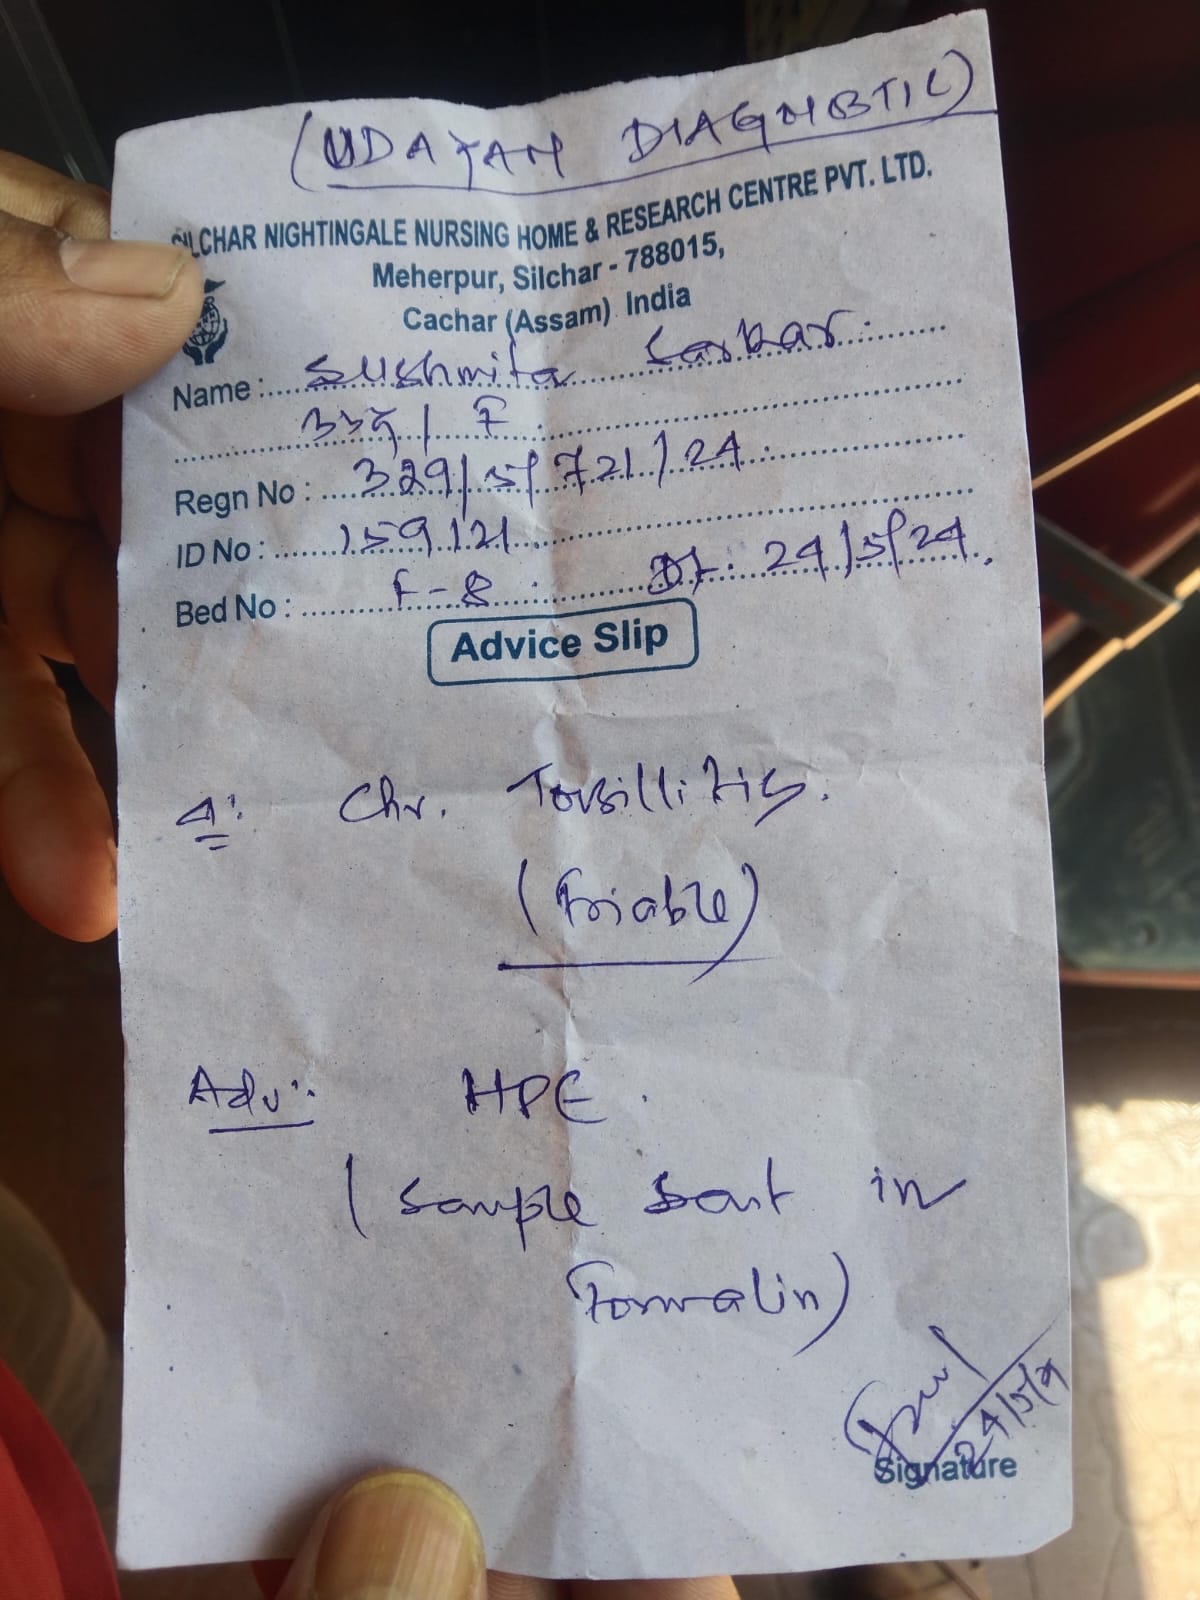 (UDAYAN DIAGNOSTIC)
SILCHAR NIGHTINGALE NURSING HOME & RESEARCH CENTRE PVT. LTD.
Meherpur, Silchar - 788015,
Cachar (Assam) India
Name : Sushmita Sarkar
33y / F
Regn No : 329/5/721/24
ID No : 159121
Bed No : F-8 Dt: 24/5/24
Advice Slip
Δ: Chr. Tonsillitis.
(Friable)
Adv: HPE.
(Sample sent in
Formalin)
24/5/24
Signature